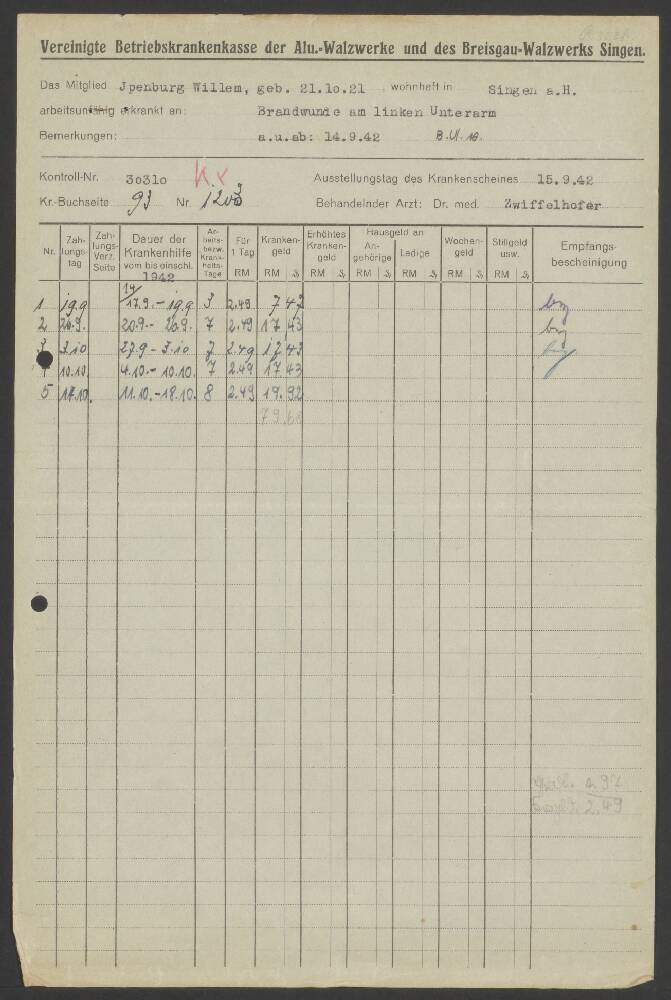 Vereinigte Betriebskrankenkasse der Alu.-Walzwerke und des Breisgau-Walzwerks Singen.
Das Mitglied Jpenburg Willem, geb. 21.10.21 wohnhaft in Singen a.H.
arbeitsunfähig erkrankt an: Brandwunde am linken Unterarm
Bemerkungen: a.u.ab: 14.9.42
Kontroll-Nr. 30310 Kx Ausstellungstag des Krankenscheines 15.9.42
Kr.-Buchseite 93 Nr. 1203 Behandelnder Arzt: Dr. med. Zwiffelhofer
Nr. Zahlungstag Zahlungs-Verz. Seite Dauer der Krankenhilfe vom bis einschl. 1942 Arbeits- bezw. Krankheits-Tage Für 1 Tag RM Krankengeld RM ₰ Erhöhtes Krankengeld RM ₰ Hausgeld an Angehörige RM ₰ Ledige RM ₰ Wochengeld RM ₰ Stillgeld usw. RM ₰ Empfangsbescheinigung
14/
1 19.9 17.9. - 19.9 3 2,49 7 47
2 26.9. 20.9. - 26.9. 7 2,49 17 43
3 3.10 27.9 - 3.10 7 2.49 17 43
10.10. 4.10. - 10.10. 7 2.49 17 43
5 17.10. 11.10. - 18.10. 8 2.49 19.92
79.68
2.49